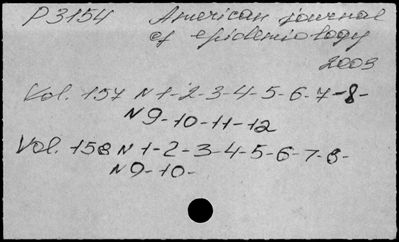 P3154 American journal
of epidemiology
2003
Vol. 157 N 1-2-3-4-5-6-7-8-
N9-10-11-12
Vol. 158 N 1-2-3-4-5-6-7-8-
N9-10-